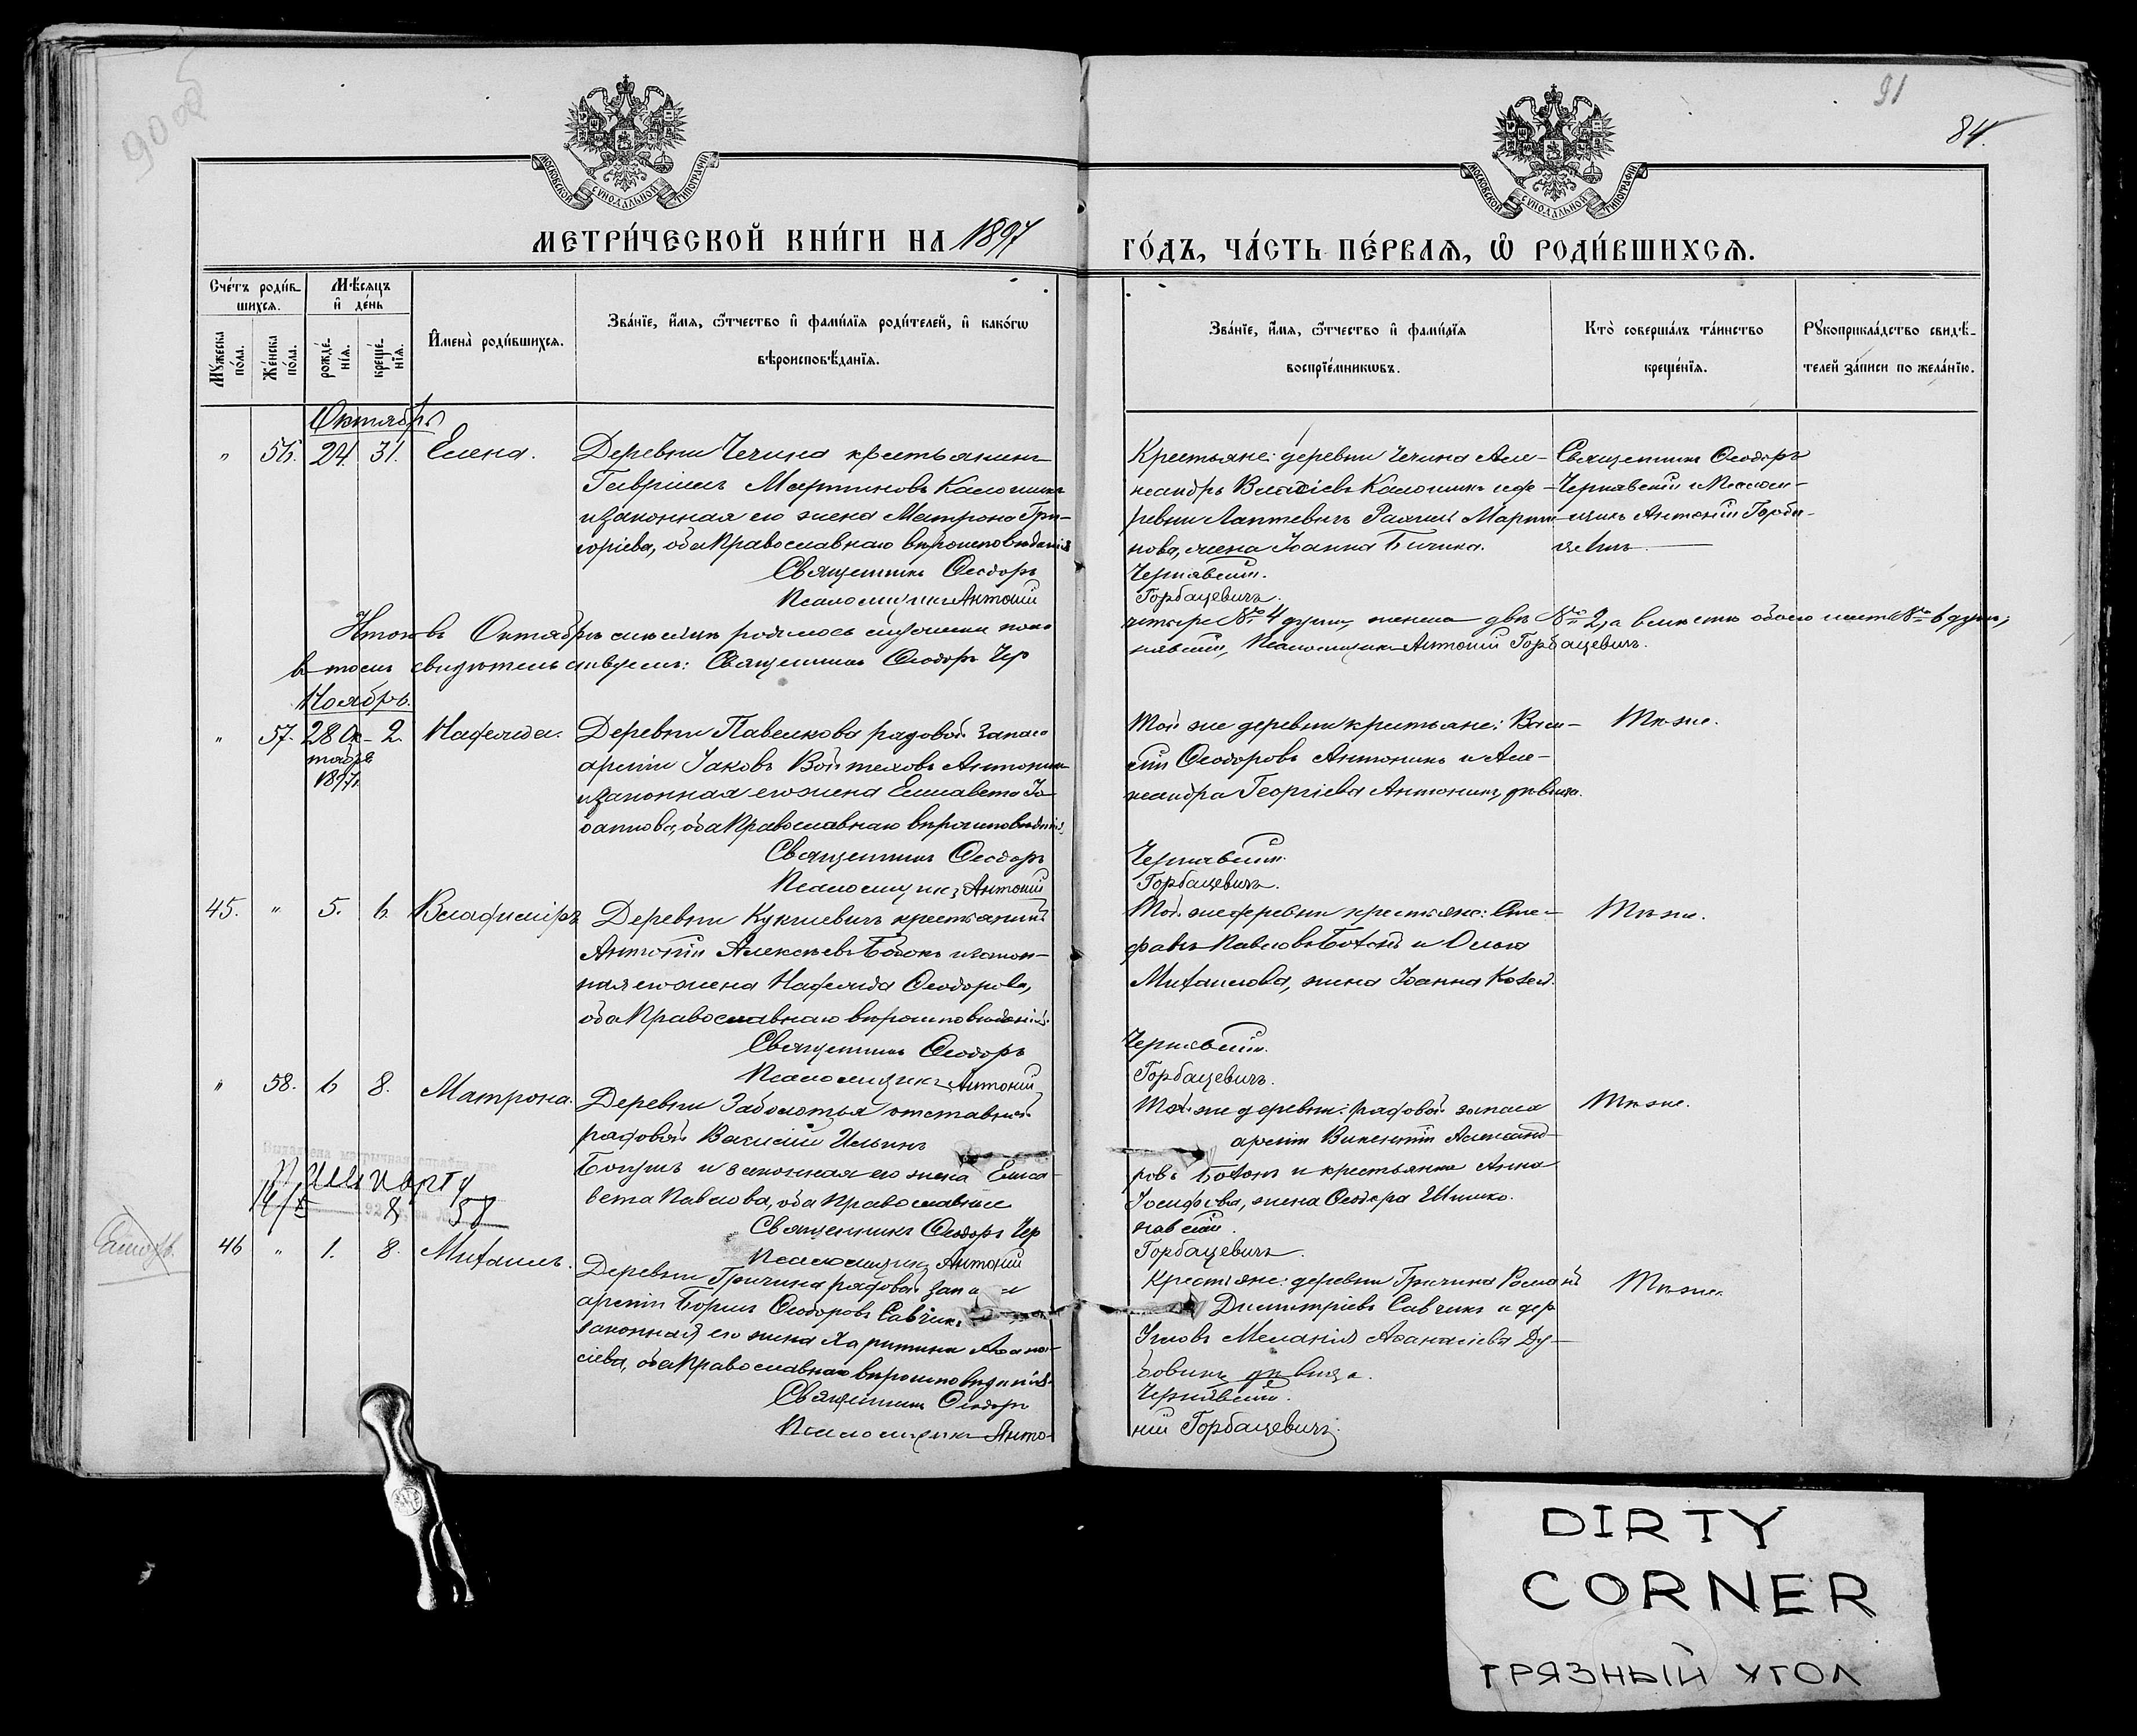 90 об
91
84.
МОСКОВСКОЙ СУНОДАЛЬНОЙ ТИПОГРАФІИ
МОСКОВСКОЙ СУНОДАЛЬНОЙ ТИПОГРАФІИ
МЕТРИ́ЧЕСКОЙ КНИ́ГИ НА 1897
ГО́ДЪ, ЧА́СТЬ ПЕ́РВАЯ, Ѡ҆ РОДИ́ВШИХСЯ.
Сче́тъ роди́в-
шихся.
Мѣ́сяцъ
и҆ де́нь
Мꙋ́жеска
по́ла.
Же́нска
по́ла.
рожде́-
нїя.
креще́-
нїя.
И҆мена̀ роди́вшихся.
Зва́нїе, и҆́мя, ѻ҆́тчество и҆ фами́лїя роди́телей, и҆ како́гѡ
вѣроисповѣ́данїя.
Зва́нїе, и҆́мя, ѻ҆́тчество и҆ фами́лїя
воспрїе́мникѡвъ.
Кто̀ соверша́лъ та́инство
креще́нїя.
Рꙋкоприкла́дство свидѣ́-
телей за́писи по жела́нїю.
Октябрь
" 56. 24. 31. Елена.
Деревни Чечина крестьянинъ
Гавріилъ Мартиновъ Калошикъ
и законная его жена Матрона Гри-
горіева, оба Православнаго вѣроисповѣданія
Священникъ Ѳеодоръ
Псаломщикъ Антоній
Крестьяне: деревни Чечина Але-
ксандръ Калошикъ и де-
ревни Лаптевичъ Марти-
нова, жена Іоанна Бичика.
Чернявскій.
Горбацевичъ.
Священникъ Ѳеодоръ
Чернявскій и Псалом-
щикъ Антоній Горба-
цевичъ.
Итого въ Октябрѣ мѣсяцѣ родилось мужеска пола
четыре № 4 души, женска двѣ № 2, а вмѣстѣ обоего шесть № 6 душъ;
въ томъ свидѣтельствуемъ: Священникъ Ѳеодоръ Чер
нявскій, Псаломщикъ Антоній Горбацевичъ.
Ноябрь.
" 57. 28 Ок- 2. Надежда.
тября
1897 г.
Деревни Павелкова рядовой запаса
арміи Іаковъ Войтеховъ Антоникъ
и законная его жена Елисавета Іо-
аннова, оба Православнаго вѣроисповѣданія,
Священникъ Ѳеодоръ
Псаломщикъ Антоній
Той же деревни крестьяне: Васи-
лій Ѳеодоровъ Антоникъ и Але-
ксандра Георгіева Антоникъ, дѣвица.
Чернявскій.
Горбацевичъ.
Тѣ же.
45. " 5. 6. Владиміръ
Деревни Кукчевичъ крестьянинъ
Антоній Алексѣевъ Ботокъ и закон-
ная его жена Надежда Ѳеодорова,
оба Православнаго вѣроисповѣданія.
Священникъ Ѳеодоръ
Псаломщикъ Антоній
Той же деревни крестьяне: Сте-
фанъ Павловъ и Ольга
Михаилова, жена Іоанна Козел.
Чернявскій.
Горбацевичъ.
Тѣ же.
" 58. 6 8. Матрона.
Деревни Заболотья отставной
рядовой Василій Ильинъ
и законная его жена Елиса-
вета Павлова, оба Православные
Священникъ Ѳеодоръ Чер
Псаломщикъ Антоній
Той же деревни: рядовой запаса
арміи Викентій Александ-
ровъ и крестьянка Анна
Іосифова, жена Ѳеодора Шишко.
нявскій.
Горбацевичъ.
Тѣ же.
8 58
46 " 1. 8. Михаилъ.
Деревни Гричина рядовой запаса
арміи Борисъ Ѳеодоровъ Савчикъ
законная его жена Харитина Аѳана-
сіева, оба Православнаго вѣроисповѣданія.
Священникъ Ѳеодоръ
Псаломщикъ Анто-
Крестьяне: деревни Гричина Романъ
Димитріевъ Савчикъ и дер
Угловъ Меланія Аѳанасіева Ду-
бовикъ дѣвица.
Чернявскій.
ній Горбацевичъ.
Тѣ же.
DIRTY
CORNER
ГРЯЗНЫЙ УГОЛ